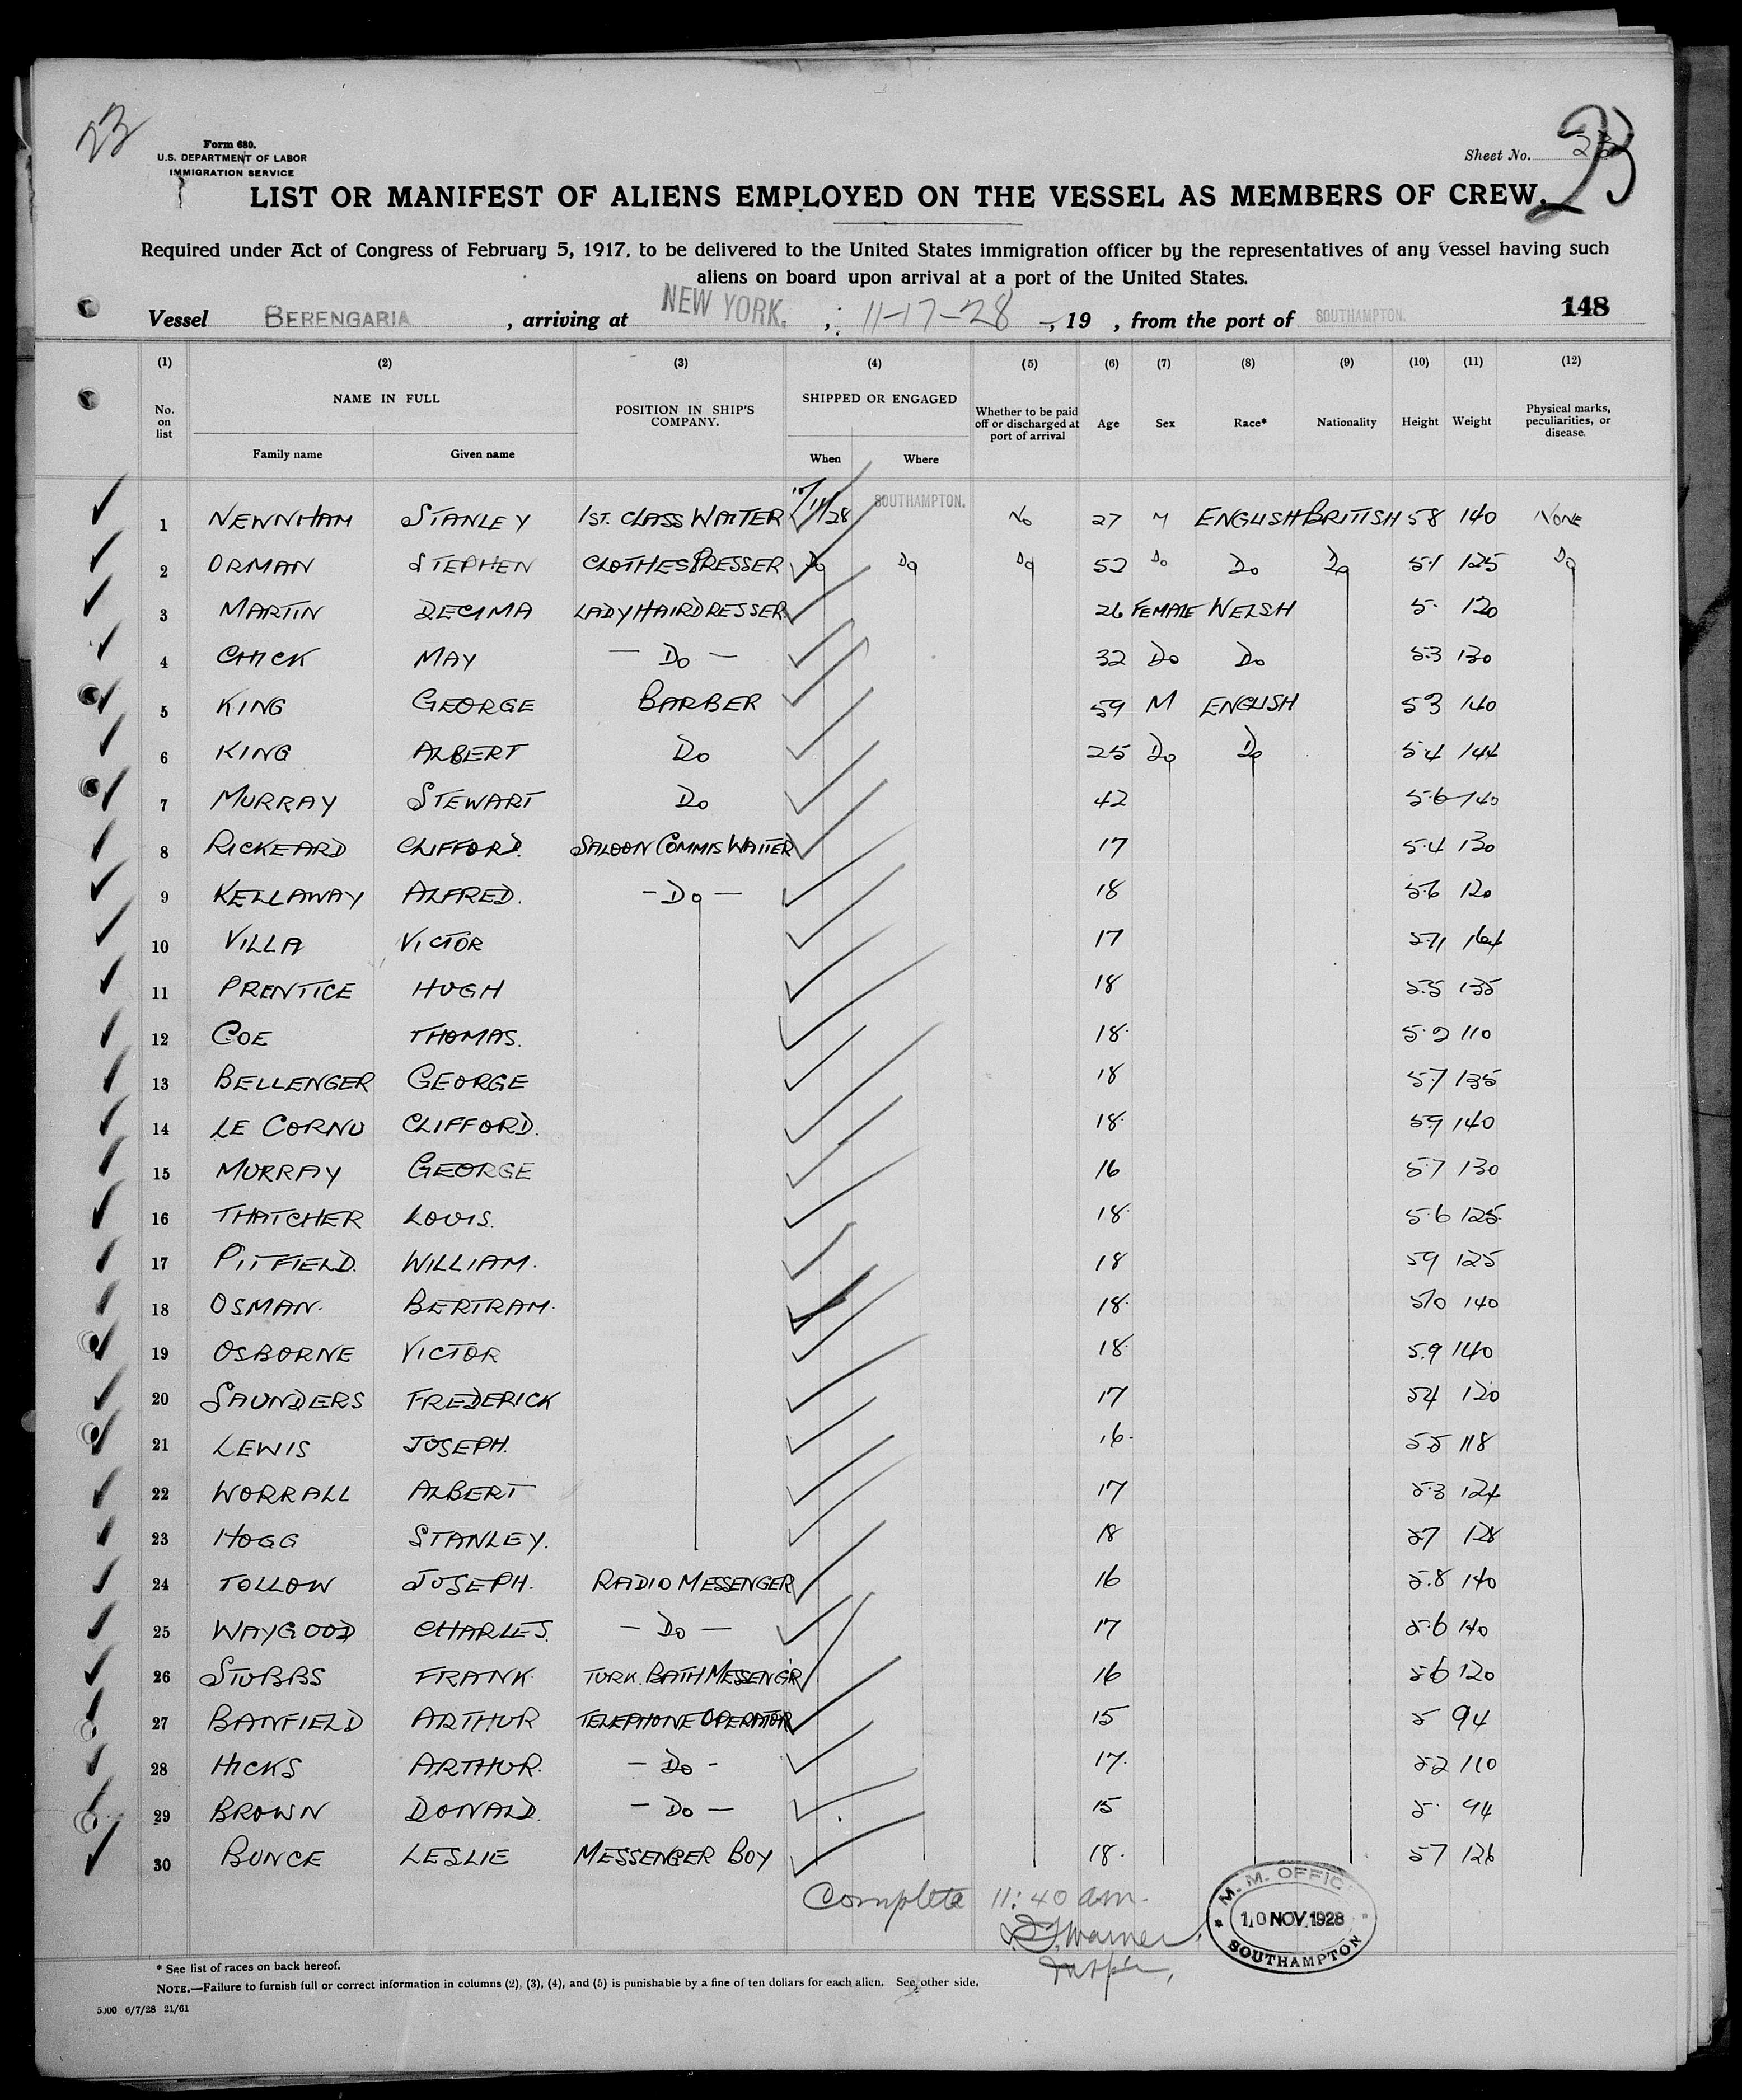 23
Form 680.
U.S. DEPARTMENT OF LABOR
IMMIGRATION SERVICE
Sheet No. 23
23
LIST OR MANIFEST OF ALIENS EMPLOYED ON THE VESSEL AS MEMBERS OF CREW.
Required under Act of Congress of February 5, 1917, to be delivered to the United States immigration officer by the representatives of any vessel having such
aliens on board upon arrival at a port of the United States.
Vessel BERENGARIA, arriving at NEW YORK., 11-17-28, 19 , from the port of SOUTHAMPTON. 148
(1) (2) (3) (4) (5) (6) (7) (8) (9) (10) (11) (12)
No. on list NAME IN FULL Family name Given name POSITION IN SHIP'S COMPANY. SHIPPED OR ENGAGED When Where Whether to be paid off or discharged at port of arrival Age Sex Race* Nationality Height Weight Physical marks, peculiarities, or disease.
1 NEWNHAM STANLEY 1ST. CLASS WAITER 10/11/28 SOUTHAMPTON. No 27 M ENGLISH BRITISH 58 140 NONE
2 ORMAN STEPHEN CLOTHES PRESSER Do Do Do 52 Do Do Do 5.1 125 Do
3 MARTIN DECIMA LADY HAIRDRESSER 26 FEMALE WELSH 5. 120
4 CHICK MAY — Do — 32 Do Do 5.3 130
5 KING GEORGE BARBER 59 M ENGLISH 53 140
6 KING ALBERT Do 25 Do Do 5.4 144
7 MURRAY STEWART Do 42 5.6 140
8 RICKEARD CLIFFORD. SALOON COMMIS WAITER 17 5.4 130
9 KELLAWAY ALFRED. — Do — 18 5.6 120
10 VILLA VICTOR 17 5.11 164
11 PRENTICE HUGH 18 5.5 135
12 COE THOMAS. 18. 5.2 110
13 BELLENGER GEORGE 18 5.7 135
14 LE CORNU CLIFFORD. 18. 5.9 140
15 MURRAY GEORGE 16 5.7 130
16 THATCHER LOUIS. 18. 5.6 125.
17 PITFIELD. WILLIAM. 18 59 125
18 OSMAN. BERTRAM. 18. 5.10 140
19 OSBORNE VICTOR 18. 5.9 140
20 SAUNDERS FREDERICK 17 54 120
21 LEWIS JOSEPH. 16. 5.5 118
22 WORRALL ALBERT 17 5.3 124
23 HOGG STANLEY. 18 57 128
24 TOLLOW JOSEPH. RADIO MESSENGER 16 5.8 140
25 WAYGOOD CHARLES. — Do — 17 5.6 140
26 STUBBS FRANK. TURK. BATH MESSENGR 16 5.6 120
27 BANFIELD ARTHUR TELEPHONE OPERATOR 15 5 94
28 HICKS ARTHUR. — Do - 17. 5.2 110
29 BROWN DONALD. — Do — 15 5. 94
30 BUNCE LESLIE MESSENGER BOY 18. 57 126
Complete 11:40 am.
Warner
M. M. OFFIC
10 NOV. 1928
SOUTHAMPTON
* See list of races on back hereof.
NOTE.—Failure to furnish full or correct information in columns (2), (3), (4), and (5) is punishable by a fine of ten dollars for each alien. See other side.
5000 6/7/28 21/61